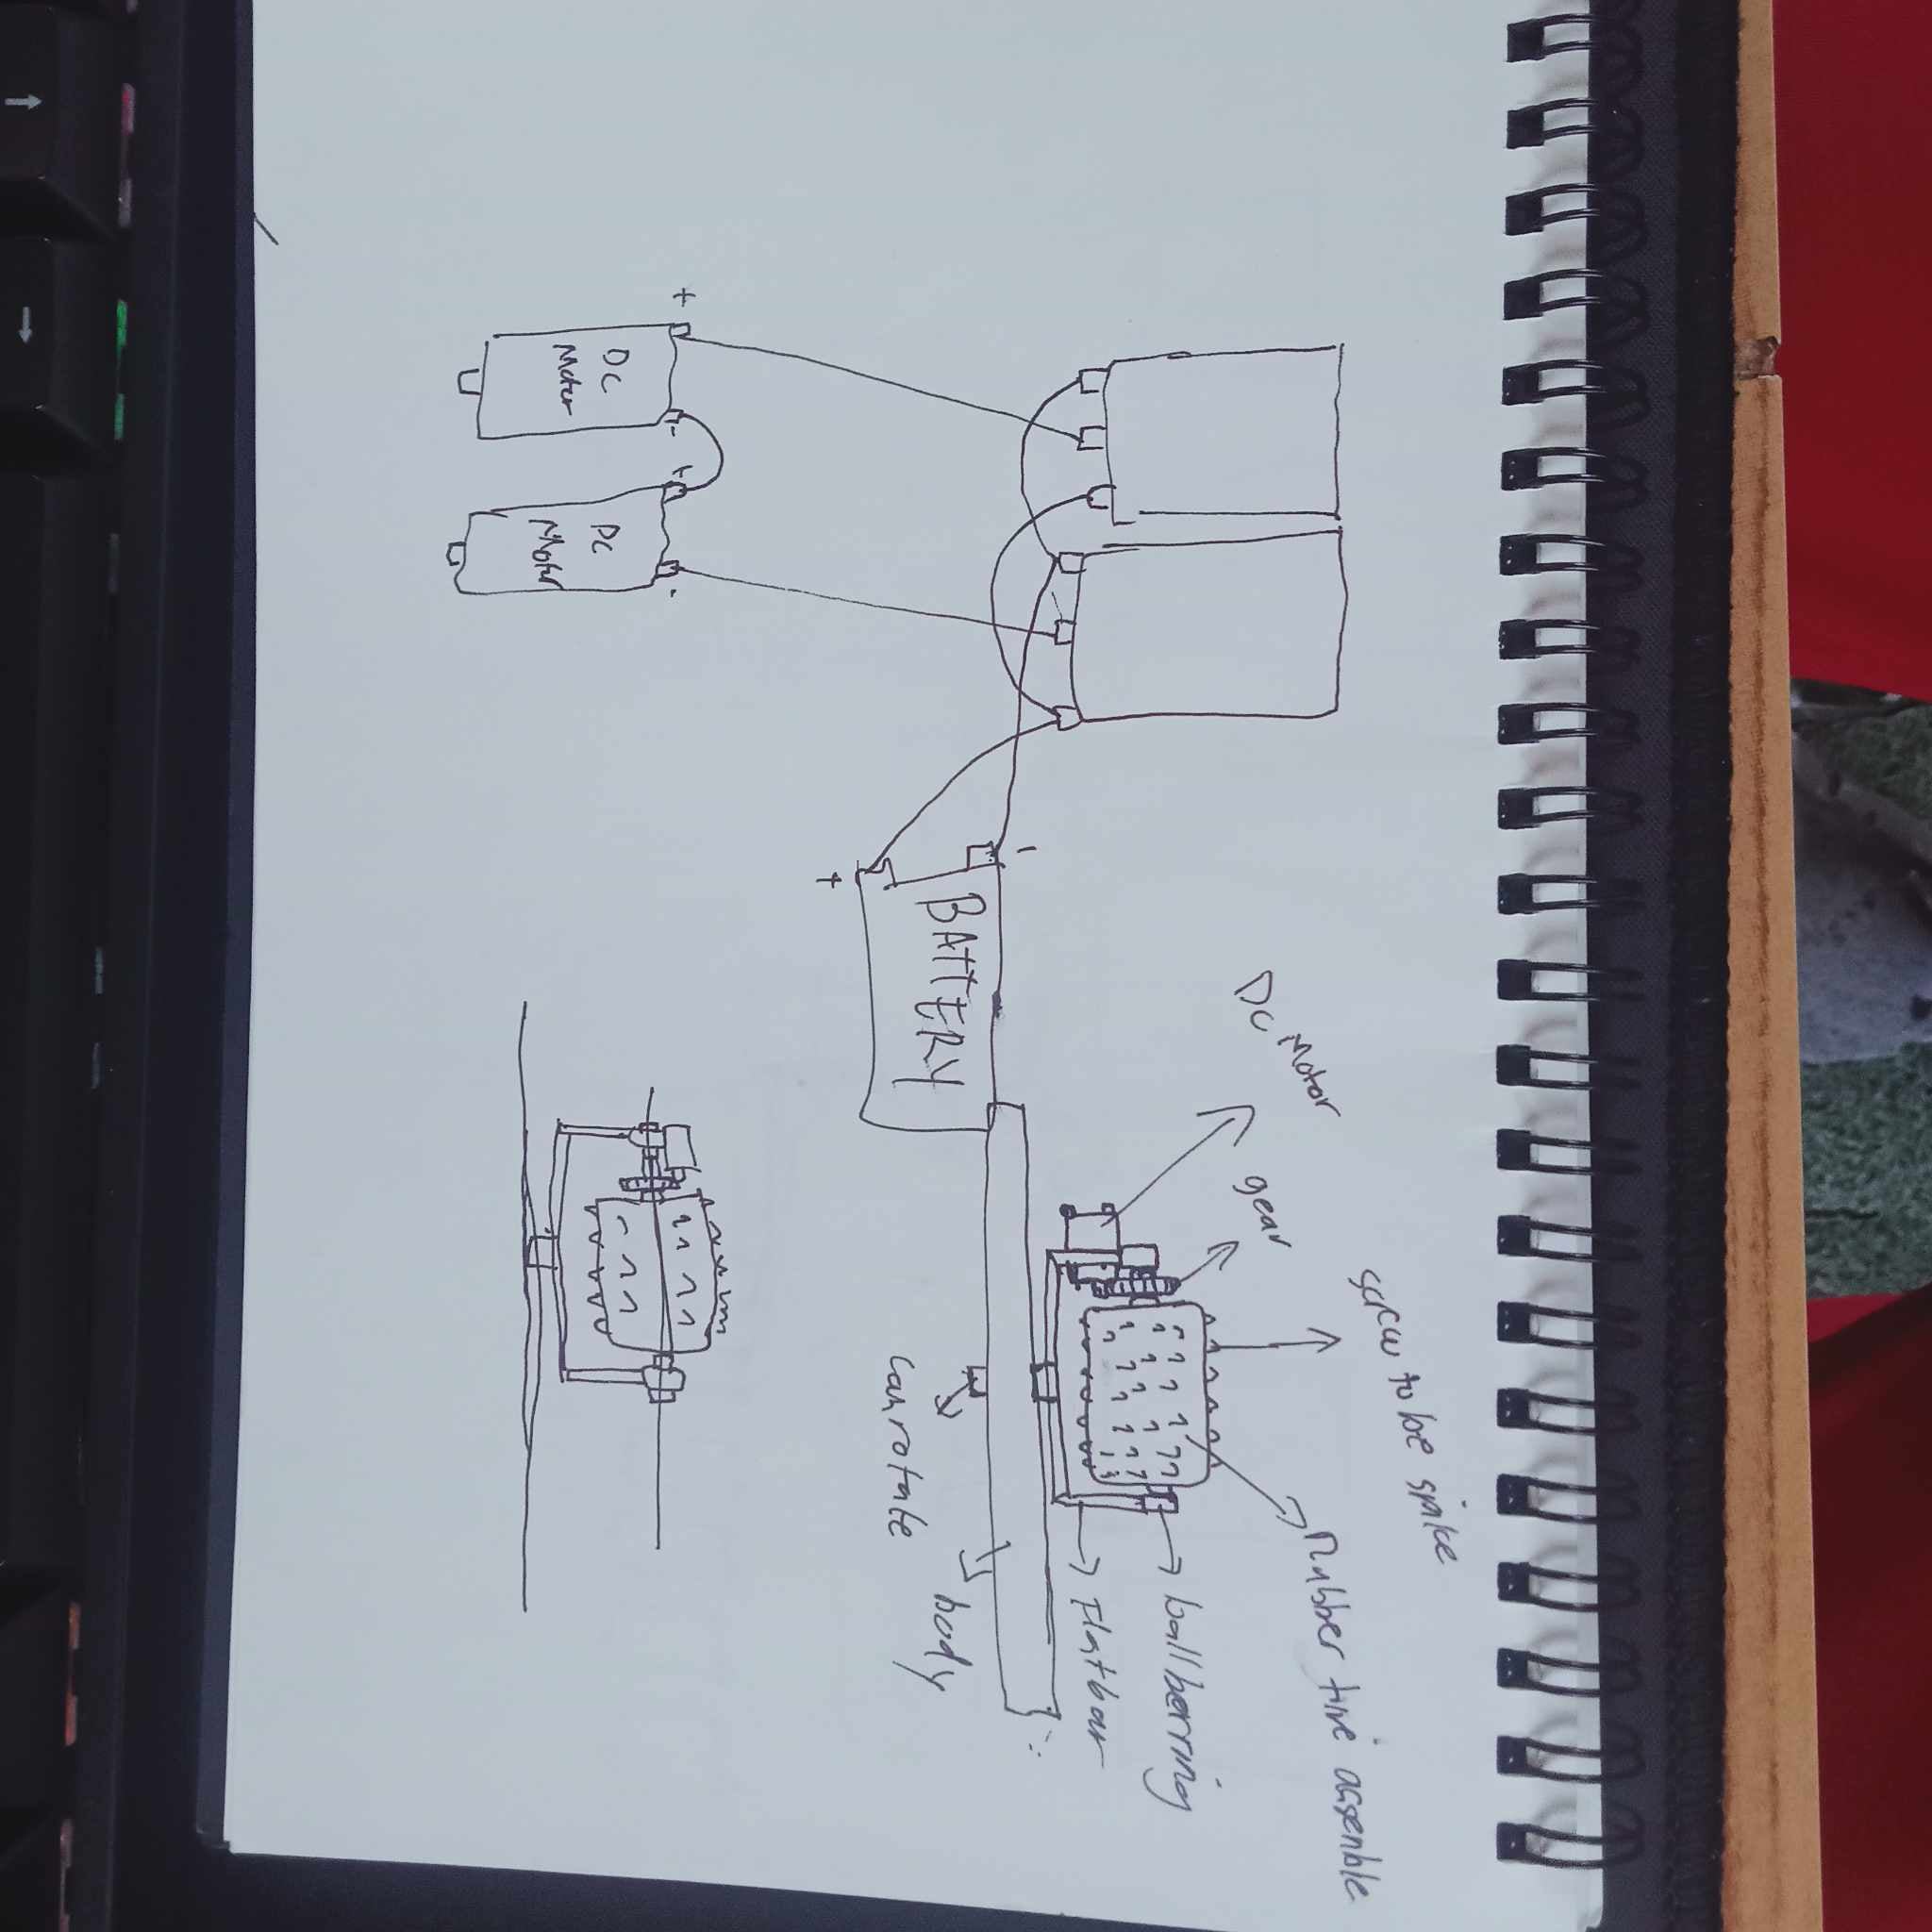 +
DC
Moter
-
+
DC
Motor
-
-
+
BATTERY
DC Motor
gear
screw to be spike
Rubber tire assemble
ball berring
Flatbar
can rotate
body